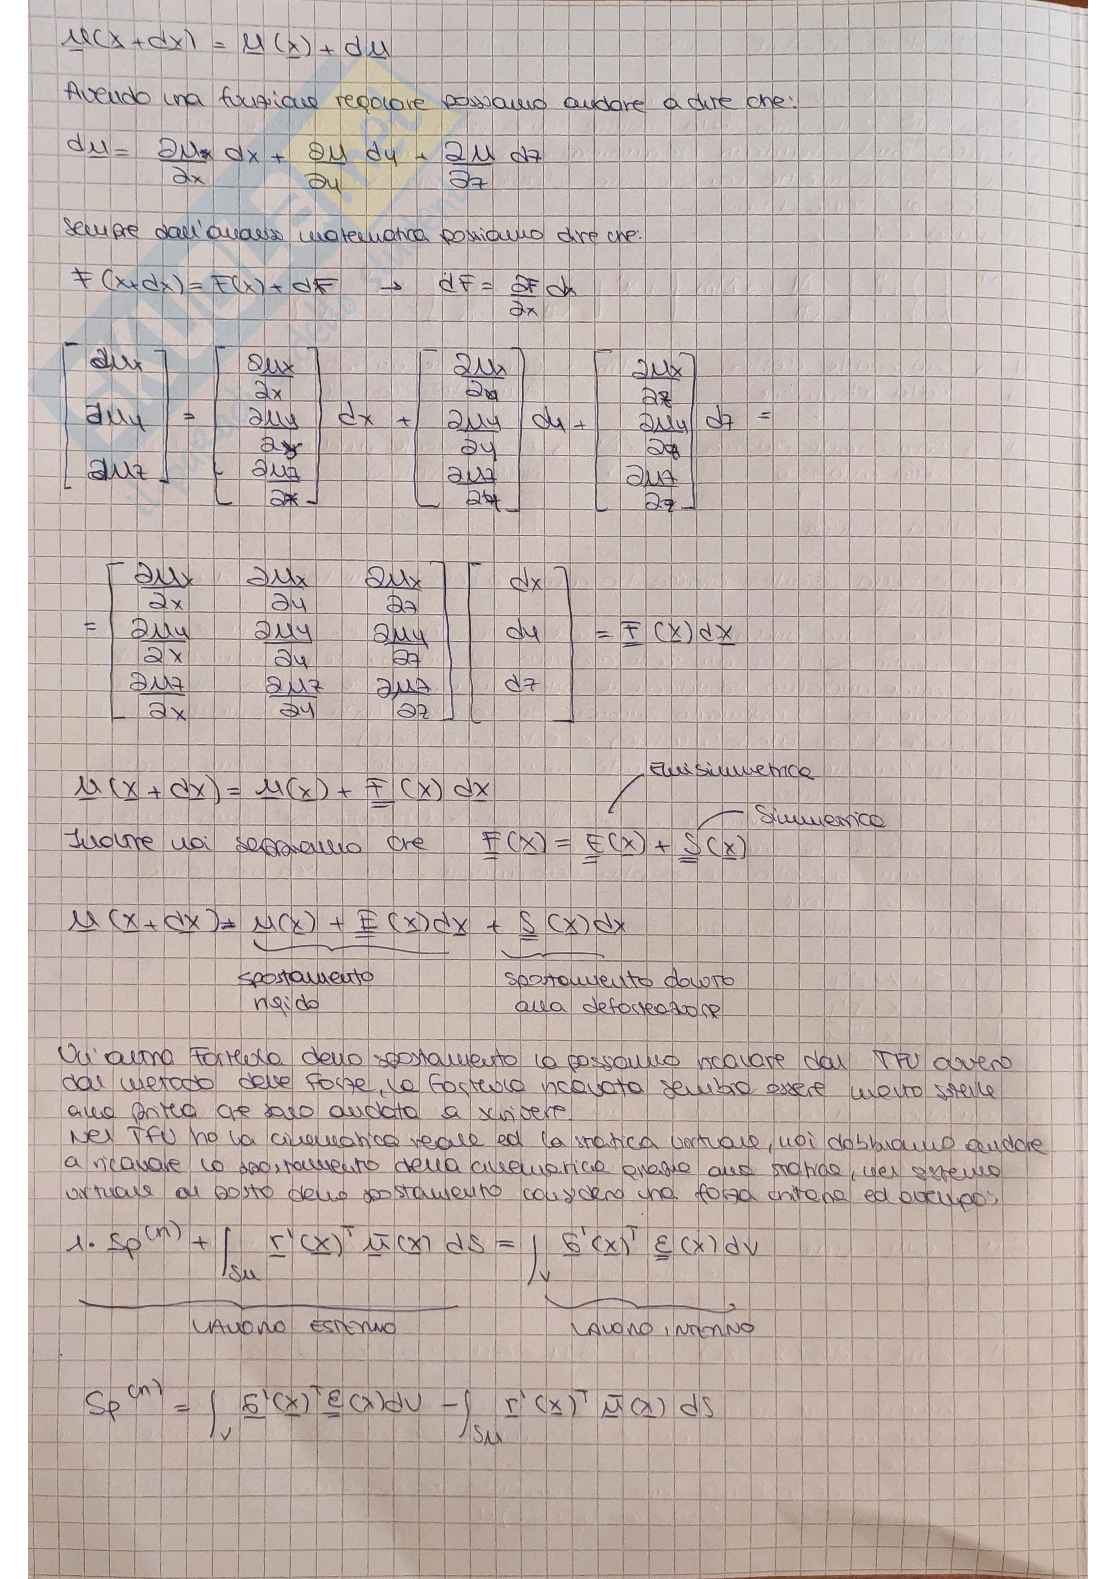 u(x+dx) = u(x) + du
Avendo una funzione regolare possiamo andare a dire che:
du = ∂ux/∂x dx + ∂u/∂y dy + ∂u/∂z dz
Sempre dall'analisi matematica possiamo dire che:
F(x+dx) = F(x) + dF → dF = ∂F/∂x dx
[∂ux ∂uy ∂uz] = [∂ux/∂x ∂uy/∂x ∂uz/∂x] dx + [∂ux/∂y ∂uy/∂y ∂uz/∂y] dy + [∂ux/∂z ∂uy/∂z ∂uz/∂z] dz =
= [∂ux/∂x ∂ux/∂y ∂ux/∂z
∂uy/∂x ∂uy/∂y ∂uy/∂z
∂uz/∂x ∂uz/∂y ∂uz/∂z] [dx dy dz] = F(x)dx
Emisimmetrica
u(x+dx) = u(x) + F(x) dx
Simmetrica
Inoltre noi sappiamo che F(x) = E(x) + S(x)
u(x+dx) = u(x) + E(x)dx + S(x)dx
spostamento rigido
spostamento dovuto alla deformazione
Un'altra formula dello spostamento la possiamo ricavare dal TFV ovvero
dal metodo delle forze, la formula ricavata sembra essere molto simile
alla prima che sono andata a scrivere.
Nel TFV ho la cinematica reale ed la statica virtuale, noi dobbiamo andare
a ricavare lo spostamento della cinematica grazie alla statica, nel sistema
virtuale al posto dello spostamento considero una forza unitaria ed
1· Sp⁽ⁿ⁾ + ∫Su r'(x)ᵀ ū(x) dS = ∫v σ'(x)ᵀ ε(x) dV
LAVORO ESTERNO
LAVORO INTERNO
Sp⁽ⁿ⁾ = ∫v σ'(x)ᵀ ε(x) dV - ∫Su r'(x)ᵀ ū(x) dS